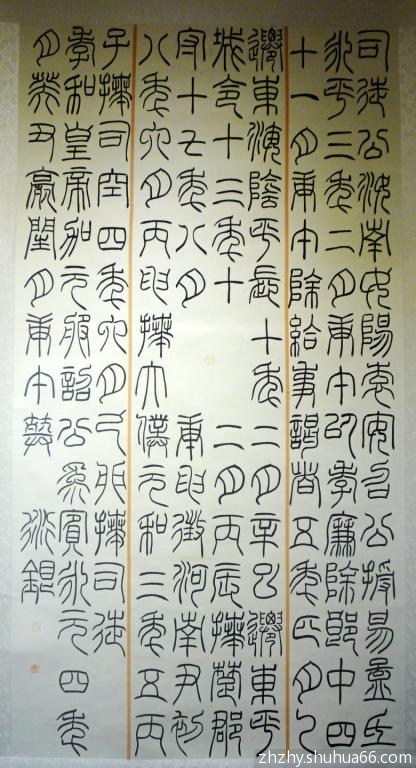 司徒公汝南女陽袁安召公授易孟氏
永平三年二月庚午以孝廉除郎中四
十一月庚午除給事謁者五年正月乙
遷東海陰平長十年二月辛巳遷東平
城令十三年十二月丙辰拜楚郡
守十七年八月庚申徵河南尹初
八年六月丙申拜太僕元和三年五丙
子拜司空四年六月己卯拜司徒
孝和皇帝加元服詔公為賓永元四年
月癸丑薨閏月庚午葬
zhzhy.shuhua66.com